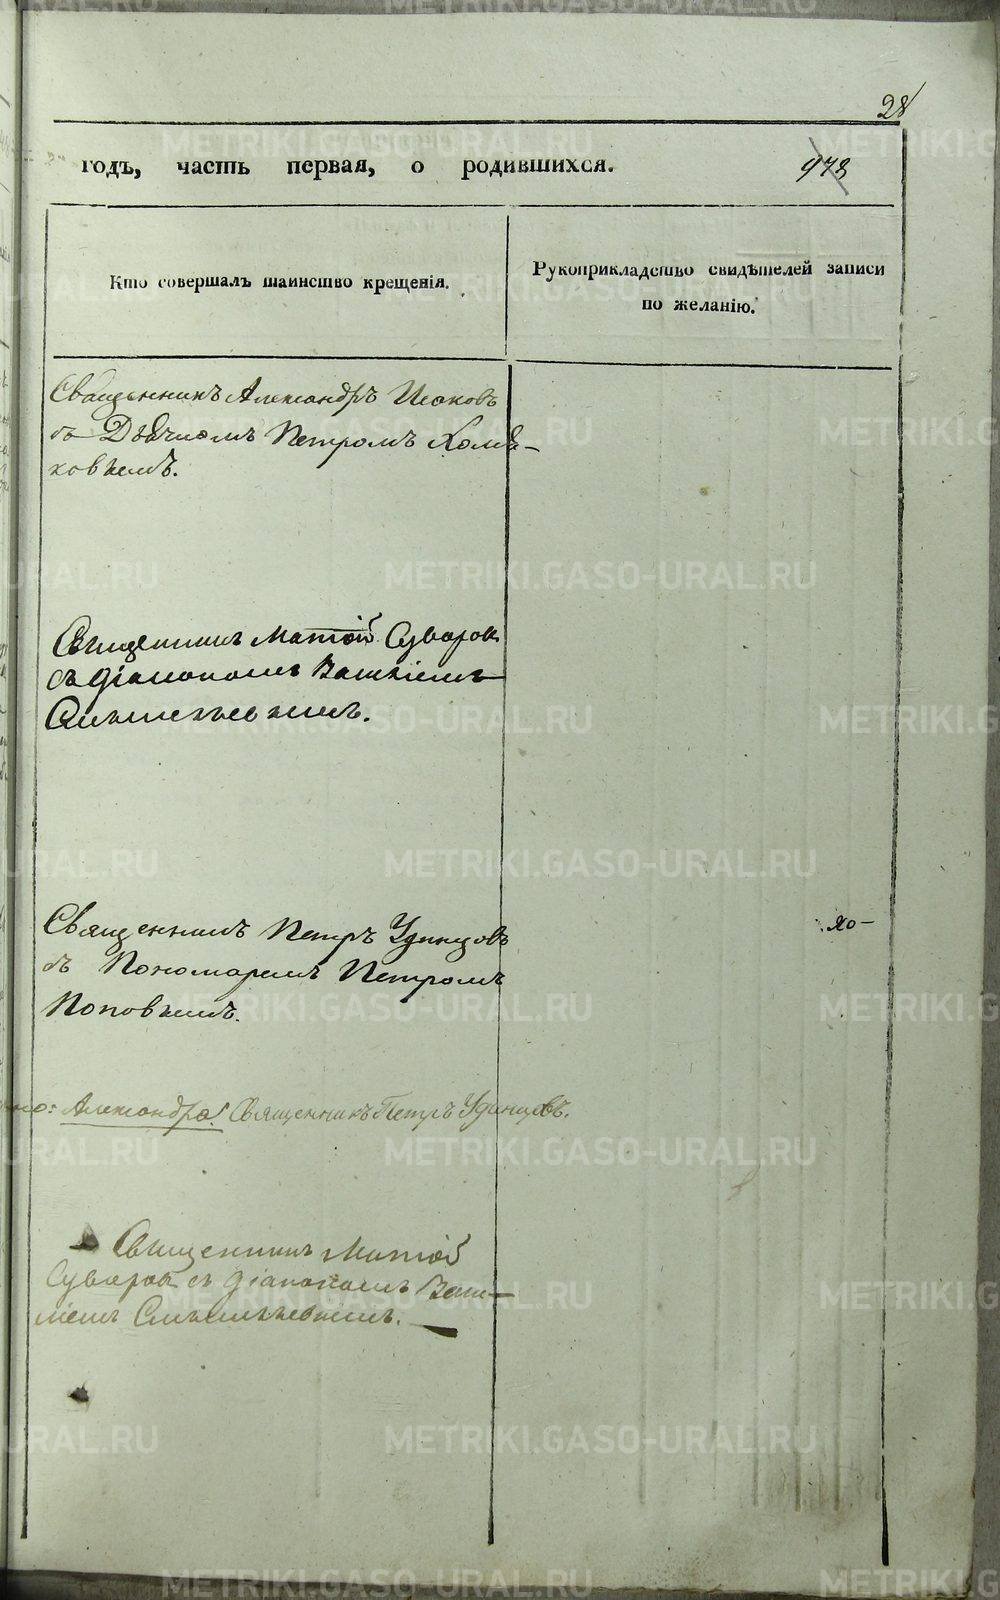 28
годъ, часть первая, о родившихся.
978
Кто совершалъ таинство крещенія.
Рукоприкладство свидѣтелей записи
по желанію.
Священникъ Александръ
съ Дьячкомъ Петромъ
Священникъ Матѳій Суворов
съ діакономъ Василіемъ
Священникъ Петръ Удинцовъ
съ Пономаремъ Петромъ
Поповымъ.
Александра. Священникъ Петръ Удинцовъ.
Священникъ Матѳій
Суворов съ діакономъ Васи-
ліемъ
METRIKI.GASO-URAL.RU